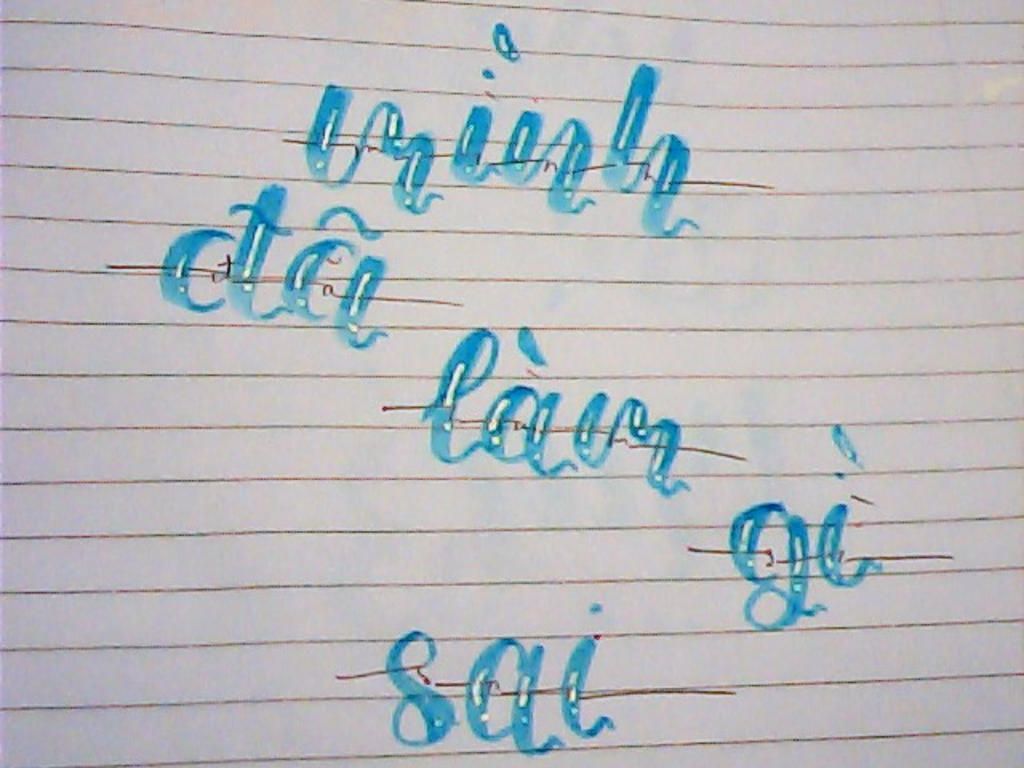 mình
đã
làm
gì
sai